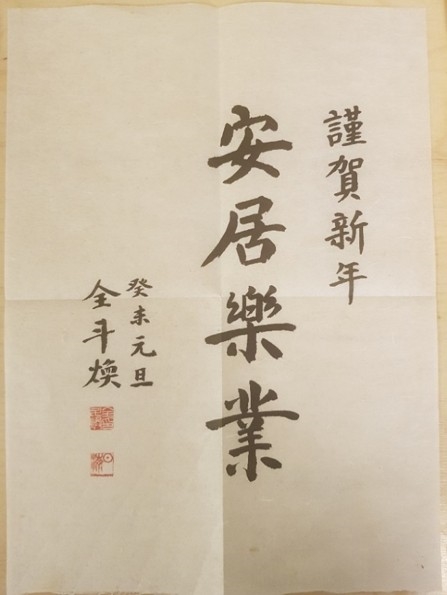 謹賀新年
安居樂業
癸未元旦
全斗煥